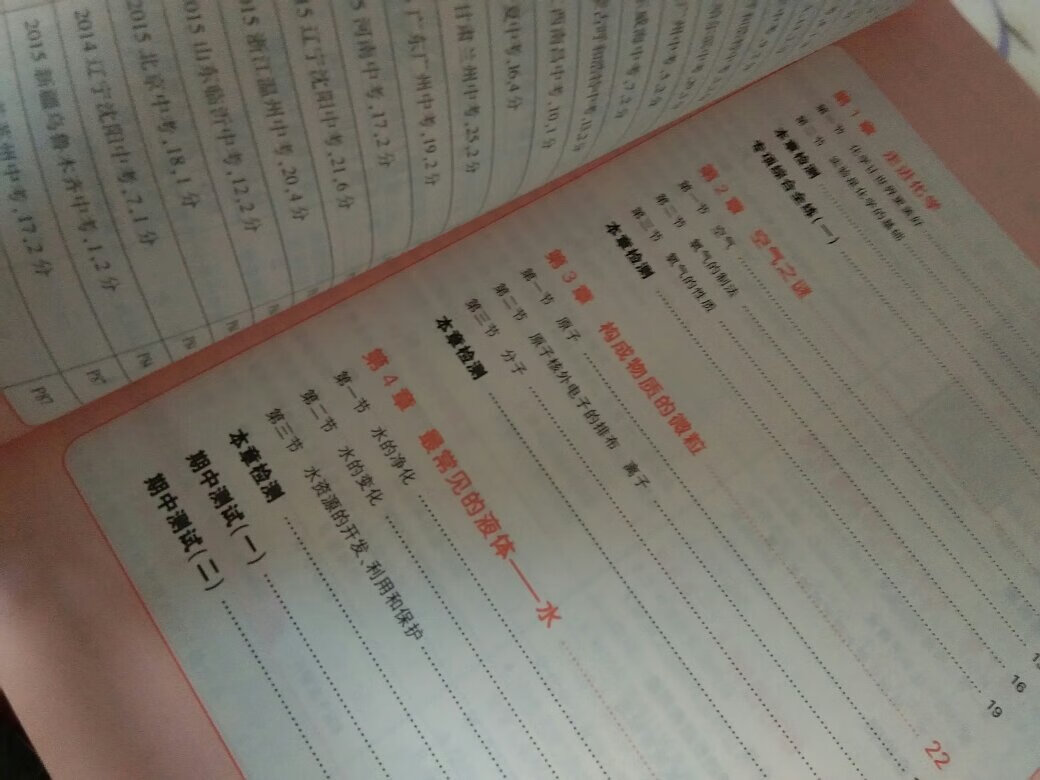 2015 新疆乌鲁木齐中考,1,2分
2014 辽宁沈阳中考,2,1分
2015 北京中考,18,1分
2015 山东临沂中考,12,2分
2015 浙江温州中考,20,4分
辽宁沈阳中考,21,6分
河南中考,17,2分
广东广州中考,19,2分
甘肃兰州中考,25,2分
夏中考,16,4分
西南昌中考,10,1分
州中考,17,2分
P87
第1章 走进化学
第一节 化学让世界更美好
第二节 实验是化学的基础
本章检测
专项综合全练(一)
第2章 空气之谜
第一节 空气
第二节 氧气的制法
第三节 氧气的性质
本章检测
第3章 构成物质的微粒
第一节 原子
第二节 原子核外电子的排布 离子
第三节 分子
本章检测
第4章 最常见的液体——水
第一节 水的净化
第二节 水的变化
第三节 水资源的开发、利用和保护
本章检测
期中测试(一)
期中测试(二)
16
19
22